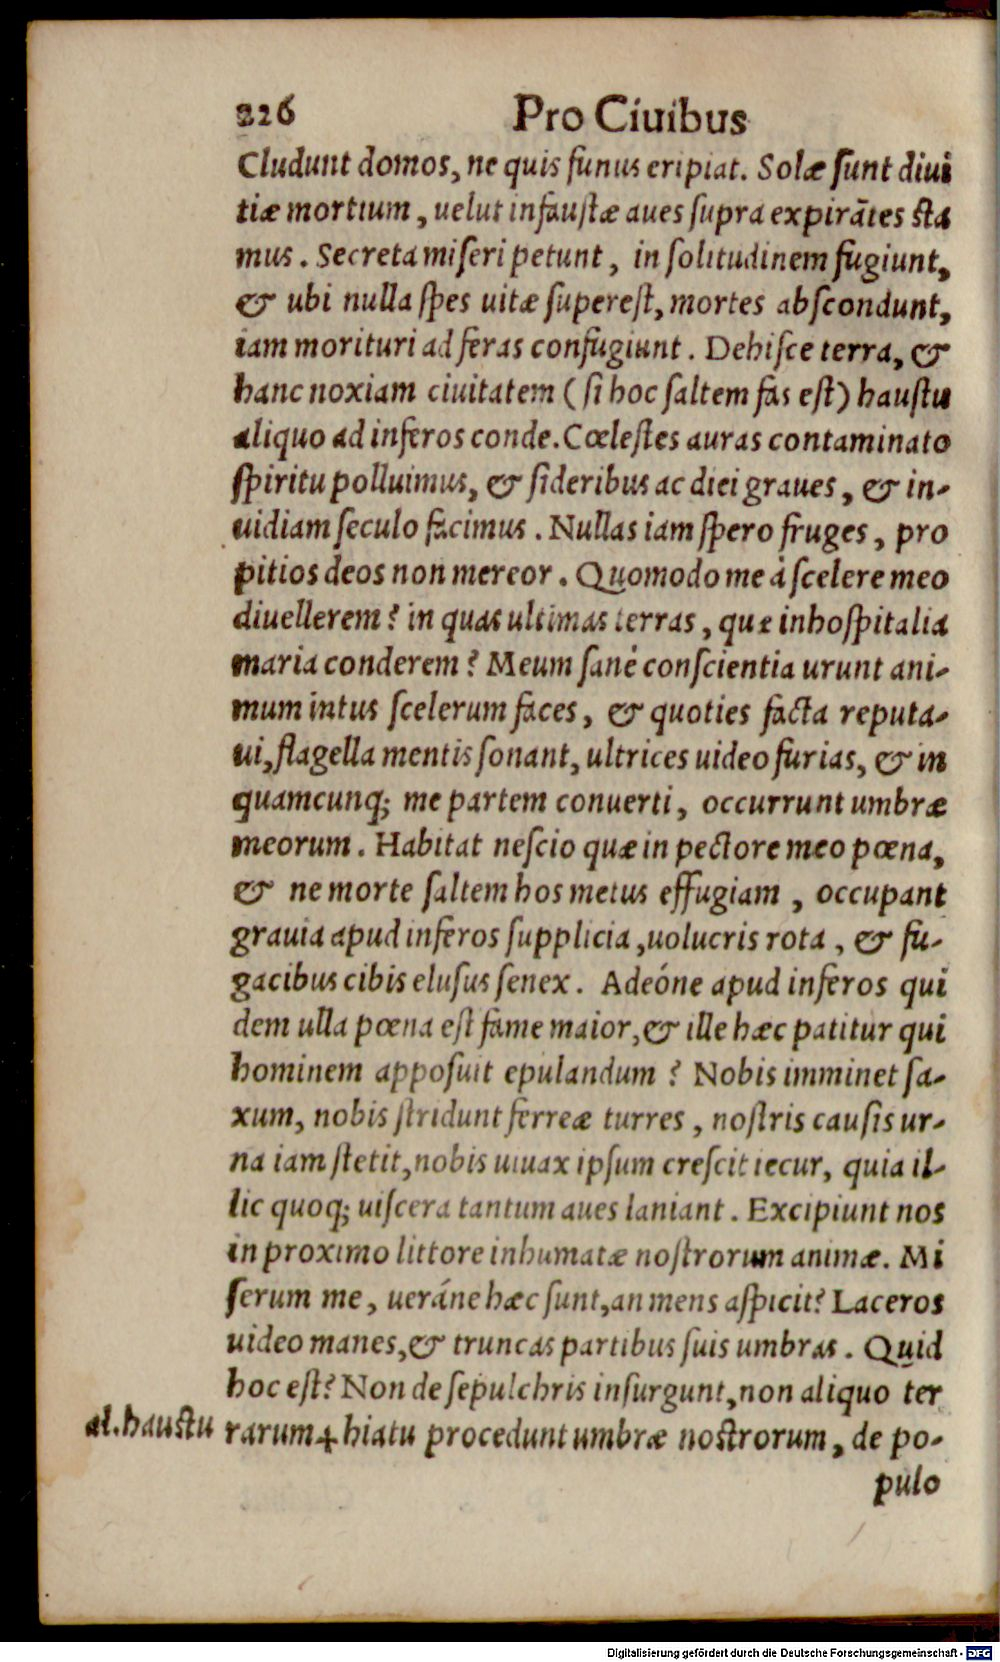 226 Pro Ciuibus
Cludunt domos, ne quis funus eripiat. Solæ ſunt diui
tiæ mortium, uelut infauſtæ aues ſupra expirātes ſta
mus. Secreta miſeri petunt, in ſolitudinem fugiunt,
& ubi nulla ſpes uitæ ſupereſt, mortes abſcondunt,
iam morituri ad feras confugiunt. Dehiſce terra, &
hanc noxiam ciuitatem (ſi hoc ſaltem fas eſt) hauſtu
aliquo ad inferos conde. Cœleſtes auras contaminato
ſpiritu polluimus, & ſideribus ac diei graues, & in-
uidiam ſeculo facimus. Nullas iam ſpero fruges, pro
pitios deos non mereor. Quomodo me à ſcelere meo
diuellerem? in quas ultimas terras, quæ inhoſpitalia
maria conderem? Meum ſanè conſcientia urunt ani-
mum intus ſcelerum faces, & quoties facta reputa-
ui, flagella mentis ſonant, ultrices uideo furias, & in
quamcunq; me partem conuerti, occurrunt umbræ
meorum. Habitat neſcio quæ in pectore meo pœna,
& ne morte ſaltem hos metus effugiam, occupant
grauia apud inferos ſupplicia, uolucris rota, & fu-
gacibus cibis eluſus ſenex. Adeóne apud inferos qui
dem ulla pœna eſt fame maior, & ille hæc patitur qui
hominem appoſuit epulandum? Nobis imminet ſa-
xum, nobis ſtridunt ferreæ turres, noſtris cauſis ur-
na iam ſtetit, nobis uiuax ipſum creſcit iecur, quia il-
lic quoq; uiſcera tantum aues laniant. Excipiunt nos
in proximo littore inhumatæ noſtrorum animæ. Mi
ſerum me, ueráne hæc ſunt, an mens aſpicit? Laceros
uideo manes, & truncas partibus ſuis umbras. Quid
hoc eſt? Non de ſepulchris inſurgunt, non aliquo ter
al. hauſtu rarum + hiatu procedunt umbræ noſtrorum, de po-
pulo
Digitalisierung gefördert durch die Deutsche Forschungsgemeinschaft - DFG